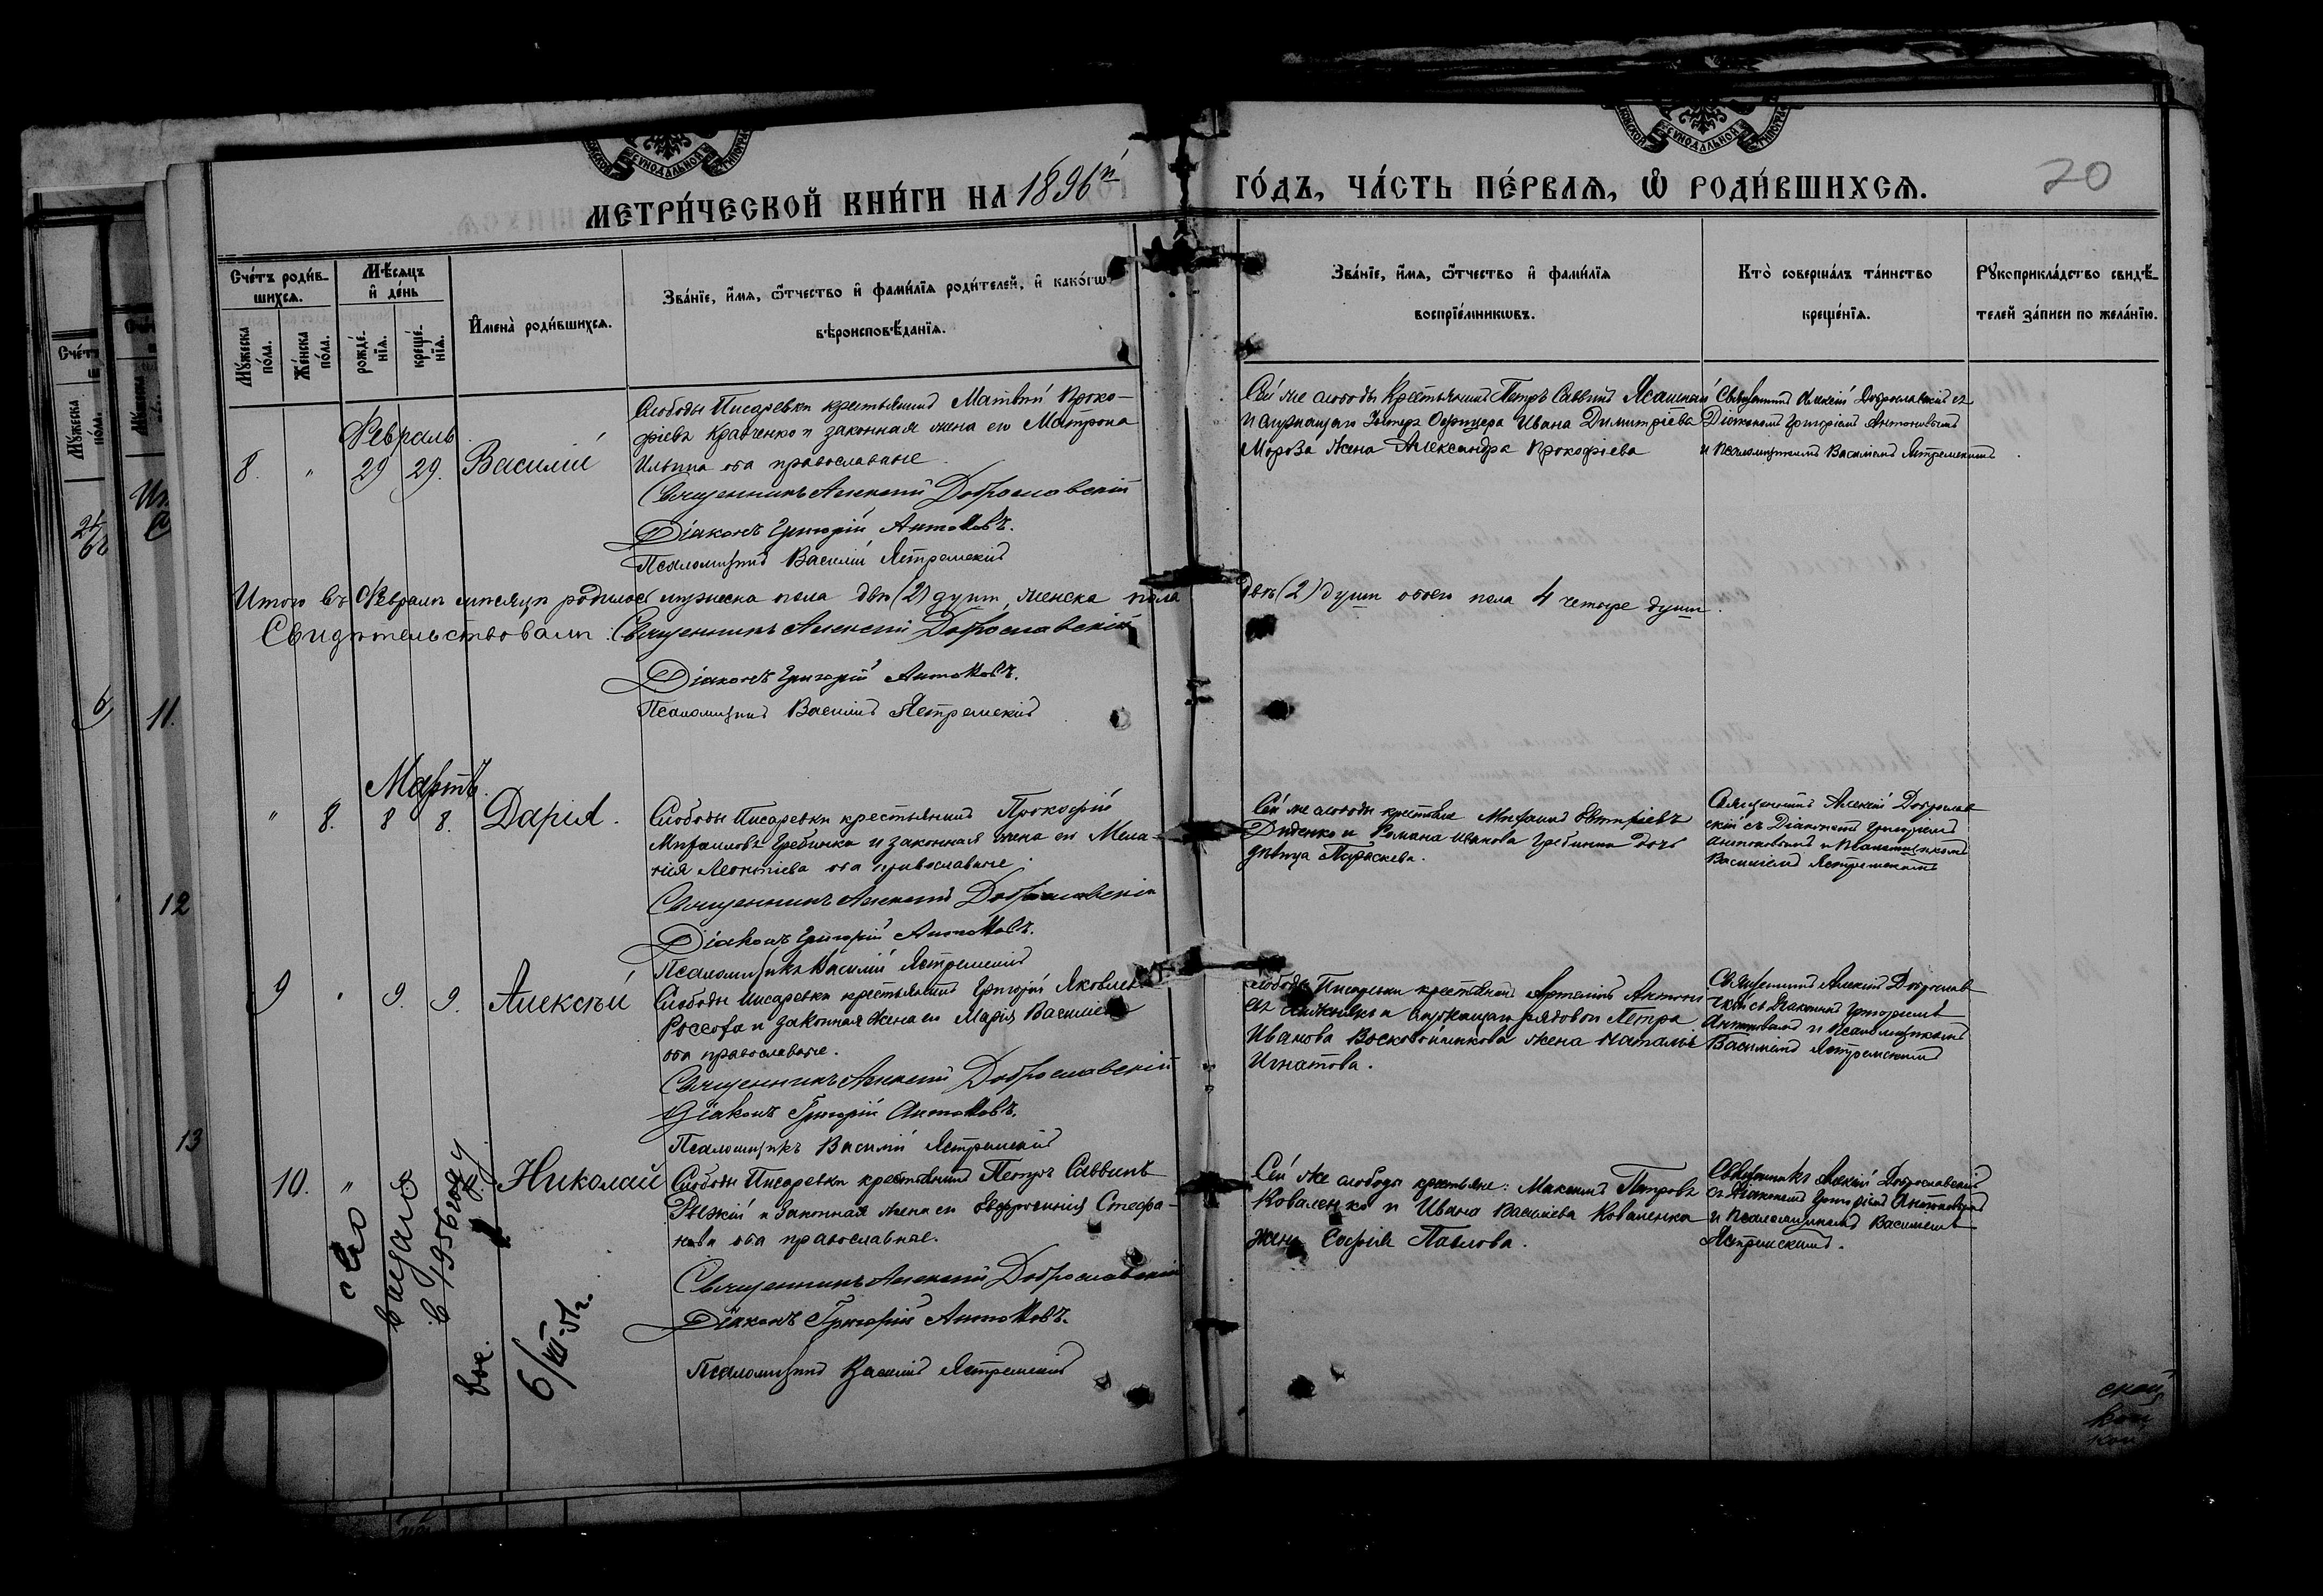 МЕТРИ́ЧЕСКОЙ КНИ́ГИ НА 1896й
ГО́ДЪ, ЧА́СТЬ ПЕ́РВАѦ, Ѽ РОДИ́ВШИХСѦ.
20
Сче́тъ роди́в-
шихсѧ.
Мѣ́сѧцъ
и҆ де́нь
И҆мена̀ роди́вшихсѧ.
Зва́нїе, и҆́мѧ, ѻ҆́тчество и҆ фами́лїѧ роди́телей, и҆ како́гѡ
вѣроисповѣ́данїѧ.
Мꙋ́жеска по́ла.
Же́нска по́ла.
рожде́-нїѧ.
креще́-нїѧ.
Зва́нїе, и҆́мѧ, ѻ҆́тчество и҆ фами́лїѧ
воспрїе́мникѡвъ.
Кто̀ соверша́лъ та́инство
креще́нїѧ.
Рꙋкоприкла́дство свидѣ́-
телей за́писи по жела́нїю.
Февраль
8. " 29 29. Василій
Слободы Писаревки крестьянинъ Матвѣй Проко-
фіевъ Кравченко и законная жена его Матрона
Ильина оба православные
Священникъ Алексій Доброславскій
Діаконъ Григорій Антоновъ.
Псаломщикъ Василій Ястремскій
Сей же слободы Крестьянинъ Петръ Саввинъ
и служащаго Унтеръ Офицера Ивана Димитріева
Мороза жена Александра Прокофіева
Священникъ Алексій Доброславскій съ
Діакономъ Григоріемъ Антоновымъ
и Псаломщикомъ Василіемъ Ястремскимъ
Итого въ Февралѣ мѣсяцѣ родилось мужеска пола двѣ (2) души, женска пола
двѣ (2) души обоего пола 4 четыре души.
Свидѣтельствовали: Священникъ Алексій Доброславскій
Діаконъ Григорій Антоновъ.
Псаломщикъ Василій Ястремскій
Мартъ.
" 8. 8 8. Дарія.
Слободы Писаревки крестьянинъ Прокофій
Михаиловъ Гребинка и законная жена его Мела-
нія Леонтіева оба православные
Священникъ Алексій Доброславскій
Діаконъ Григорій Антоновъ.
Псаломщикъ Василій Ястремскій
Сей же слободы крестьяне Михаилъ Дмитріевъ
Диденко и Романа Иванова Гребинки дочь
дѣвица Параскева.
Священникъ Алексій Доброслав
скій съ Діакономъ Григоріемъ
Антоновымъ и Псаломщикомъ
Василіемъ Ястремскимъ
9 " 9. 9. Алексѣй
Слободы Писаревки крестьянинъ Григорій Яковлевъ
Россоха и законная жена его Марія Василіева
оба православные.
Священникъ Алексій Доброславскій
Діаконъ Григорій Антоновъ.
Псаломщикъ Василій Ястремскій
Слободы Писаревки крестьянинъ Артемій Антоні
евъ и служащаго рядового Петра
Иванова Восковойникова жена Наталья
Игнатова.
Священникъ Алексій Доброслав
скій съ Діакономъ Григоріемъ
Антоновымъ и Псаломщикомъ
Василіемъ Ястремскимъ
10. " Николай
Слободы Писаревки крестьянинъ Петръ Саввинъ
Рыжій и законная жена его Евфросинія Стефа-
нова оба православные.
Священникъ Алексій Доброславскій
Діаконъ Григорій Антоновъ.
Псаломщикъ Василій Ястремскій
Сей же слободы крестьяне: Максимъ Петровъ
Коваленко и Ивана Василіева Коваленка
жена Софія Павлова.
Священникъ Алексій Доброславскій
съ Діакономъ Григоріемъ Антоновымъ
и Псаломщикомъ Василіемъ
Ястремскимъ.
с-во
выдано
в 1956 году
6/VIII-51г.
11.
12
13